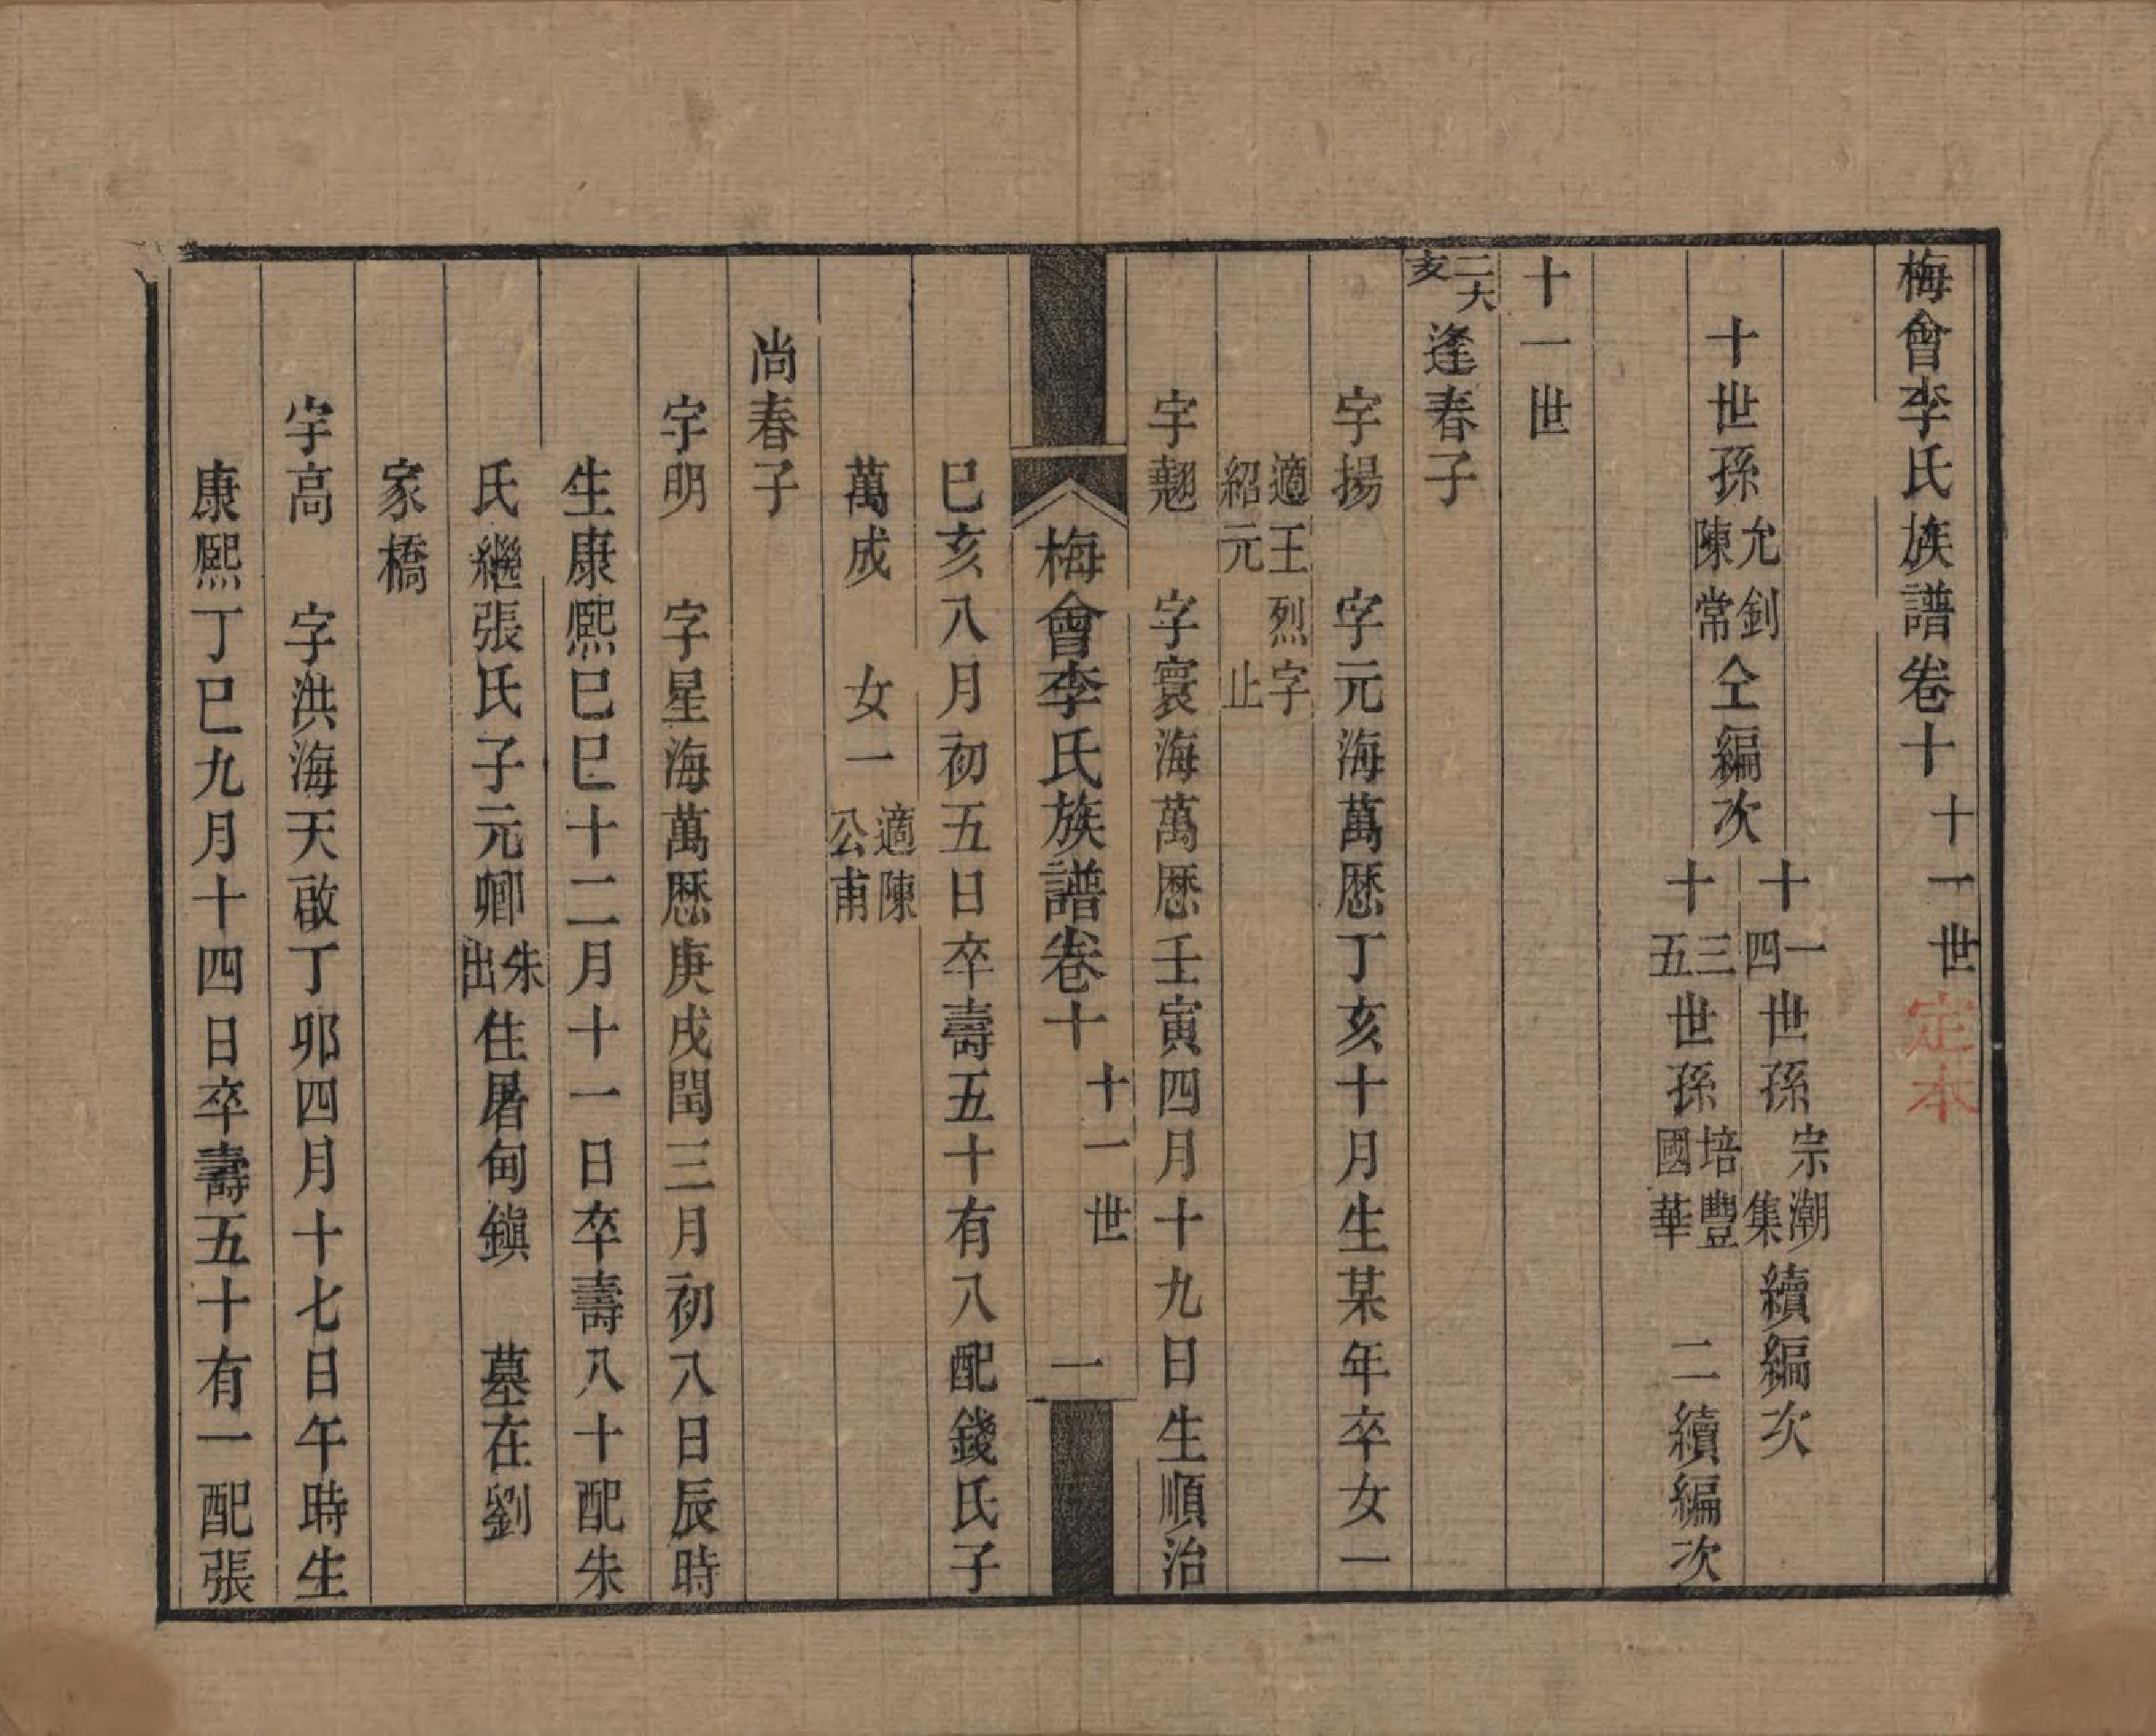 梅會李氏族譜卷十 十一世 定本
十世孫允釗陳常仝編次
十一四世孫宗潮集續編次
十三五世孫培豐國華 二續編次
十一世
二大亥 逢春子
宇揚 字元海萬厯丁亥十月生某年卒女一
適王烈字紹元止
宇翹 字寰海萬厯壬寅四月十九日生順治
梅會李氏族譜卷十 十一世 一
巳亥八月初五日卒壽五十有八配錢氏子
萬成 女一適陳公甫
尚春子
宇明 字星海萬厯庚戌閏三月初八日辰時
生康熙巳巳十二月十一日卒壽八十配朱
氏繼張氏子元卿朱出住屠甸鎭 墓在劉
家橋
宇高 字洪海天啟丁卯四月十七日午時生
康熙丁巳九月十四日卒壽五十有一配張